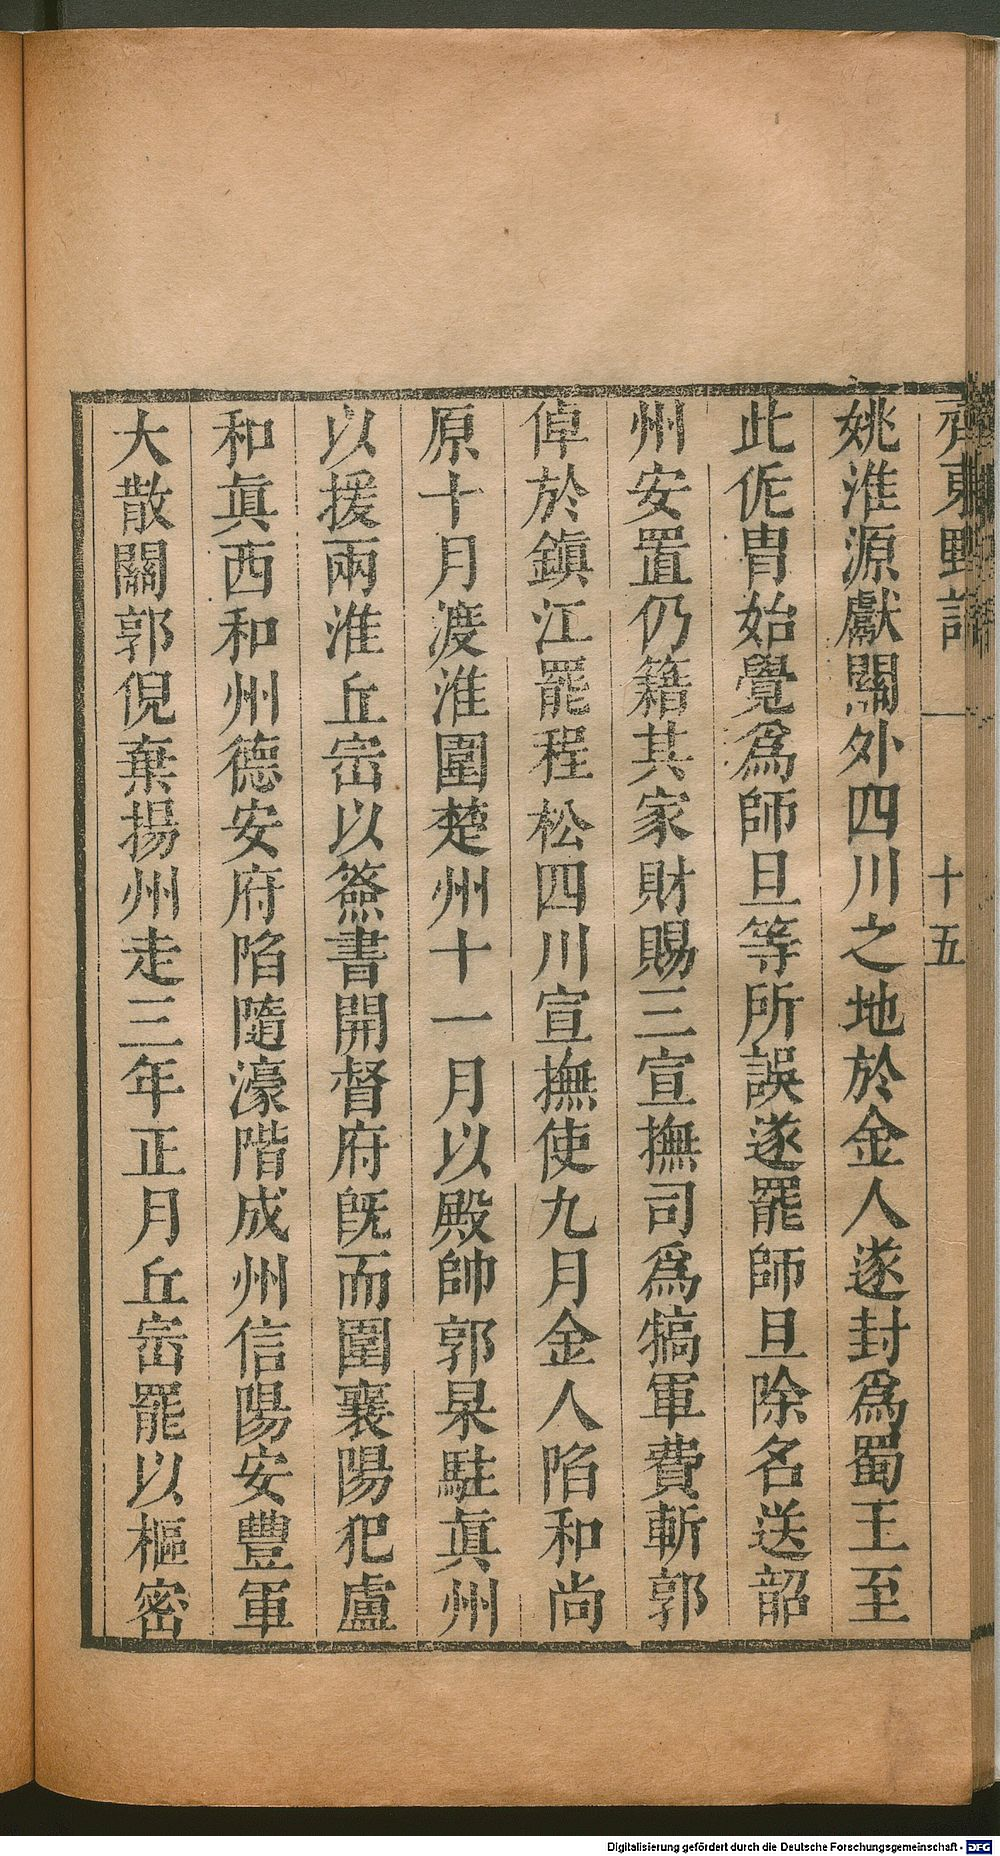 齊東野語 十五
姚淮源獻關外四川之地於金人遂封爲蜀王至
此侂胄始覺爲師旦等所誤遂罷師旦除名送韶
州安置仍籍其家財賜三宣撫司爲犒軍費斬郭
倬於鎭江罷程松四川宣撫使九月金人陷和尚
原十月渡淮圍楚州十一月以殿帥郭杲駐眞州
以援兩淮丘崈以簽書開督府旣而圍襄陽犯盧
和眞西和州德安府陷隨濠階成州信陽安豐軍
大散關郭倪棄揚州走三年正月丘崈罷以樞密
Digitalisierung gefördert durch die Deutsche Forschungsgemeinschaft - DFG